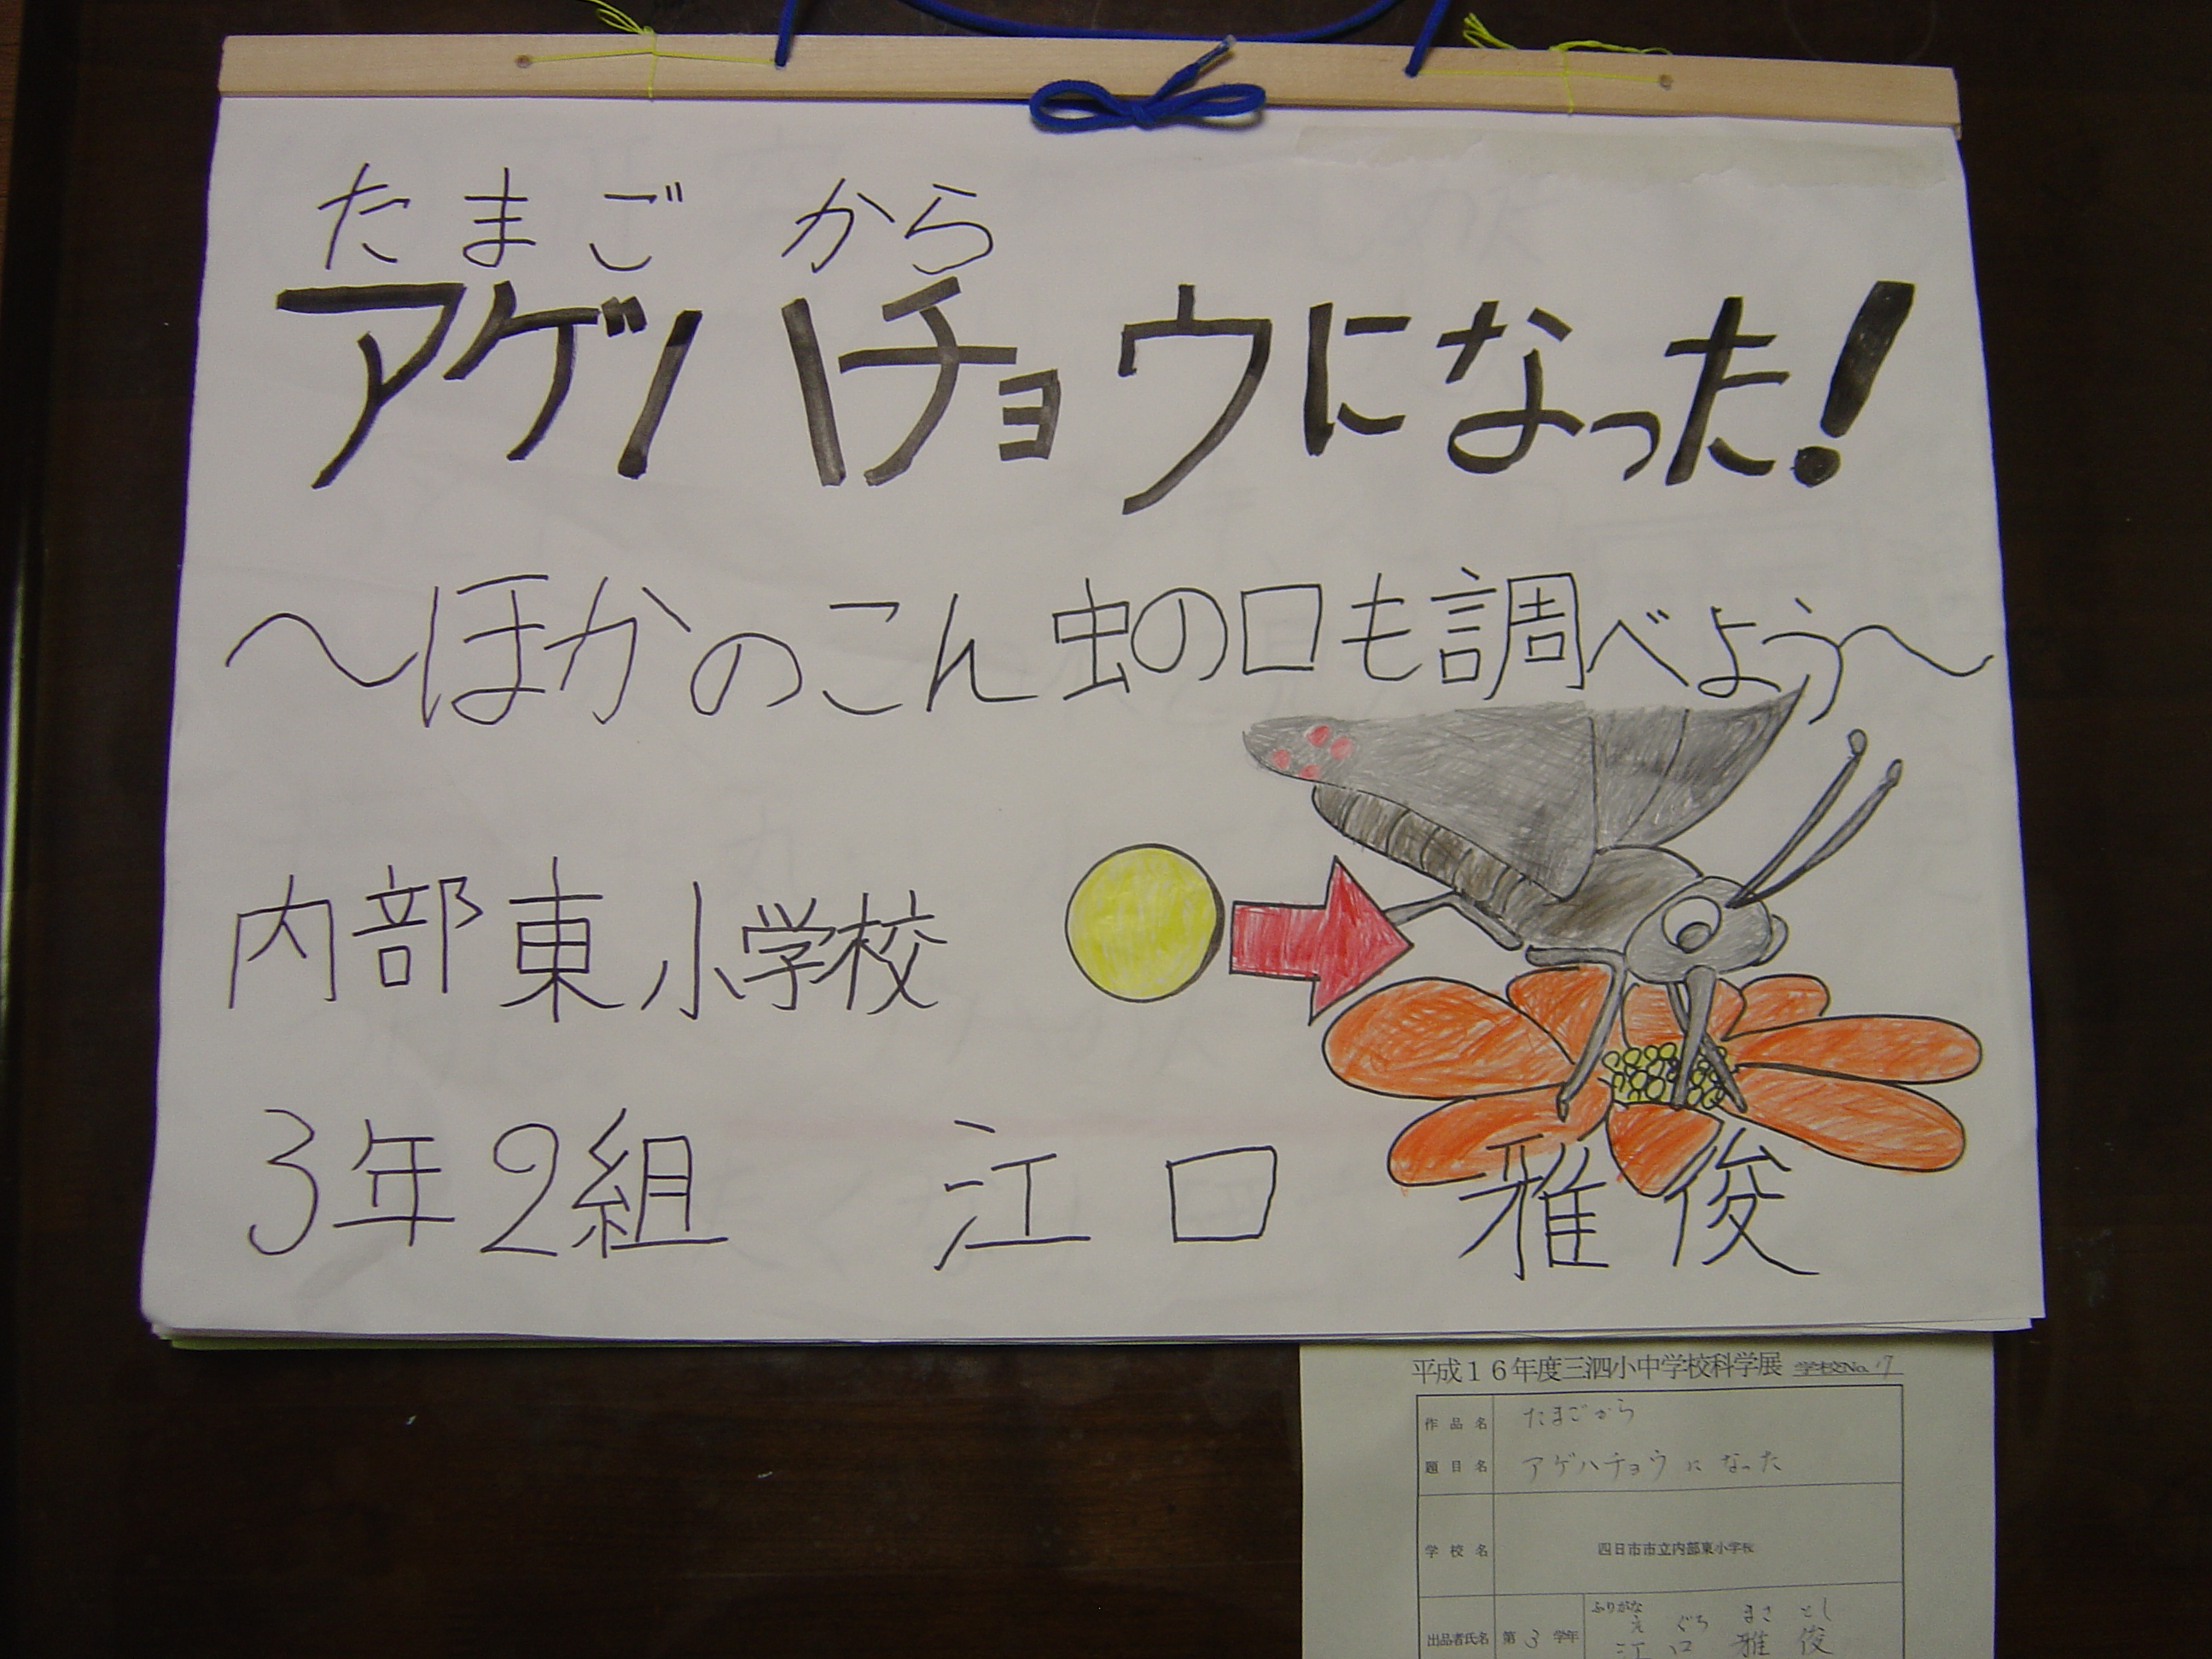 たまごから
アゲハチョウになった!
〜ほかのこん虫の口も調べよう〜
内部東小学校
3年2組 江口 雅俊
平成16年度三泗小中学校科学展 学校No.17
作品名 たまごから
題目名 アゲハチョウになった
学校名 四日市市立内部東小学校
ふりがな えぐち まさとし
出品者氏名 第3学年 江口 雅俊